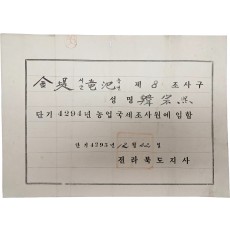 金堤 시군 龍池 읍면 제 8 조사구
성명 韓宗
단기 4294년 농업국제조사원에 임함
단기 4293년 12월 20일
전라북도지사